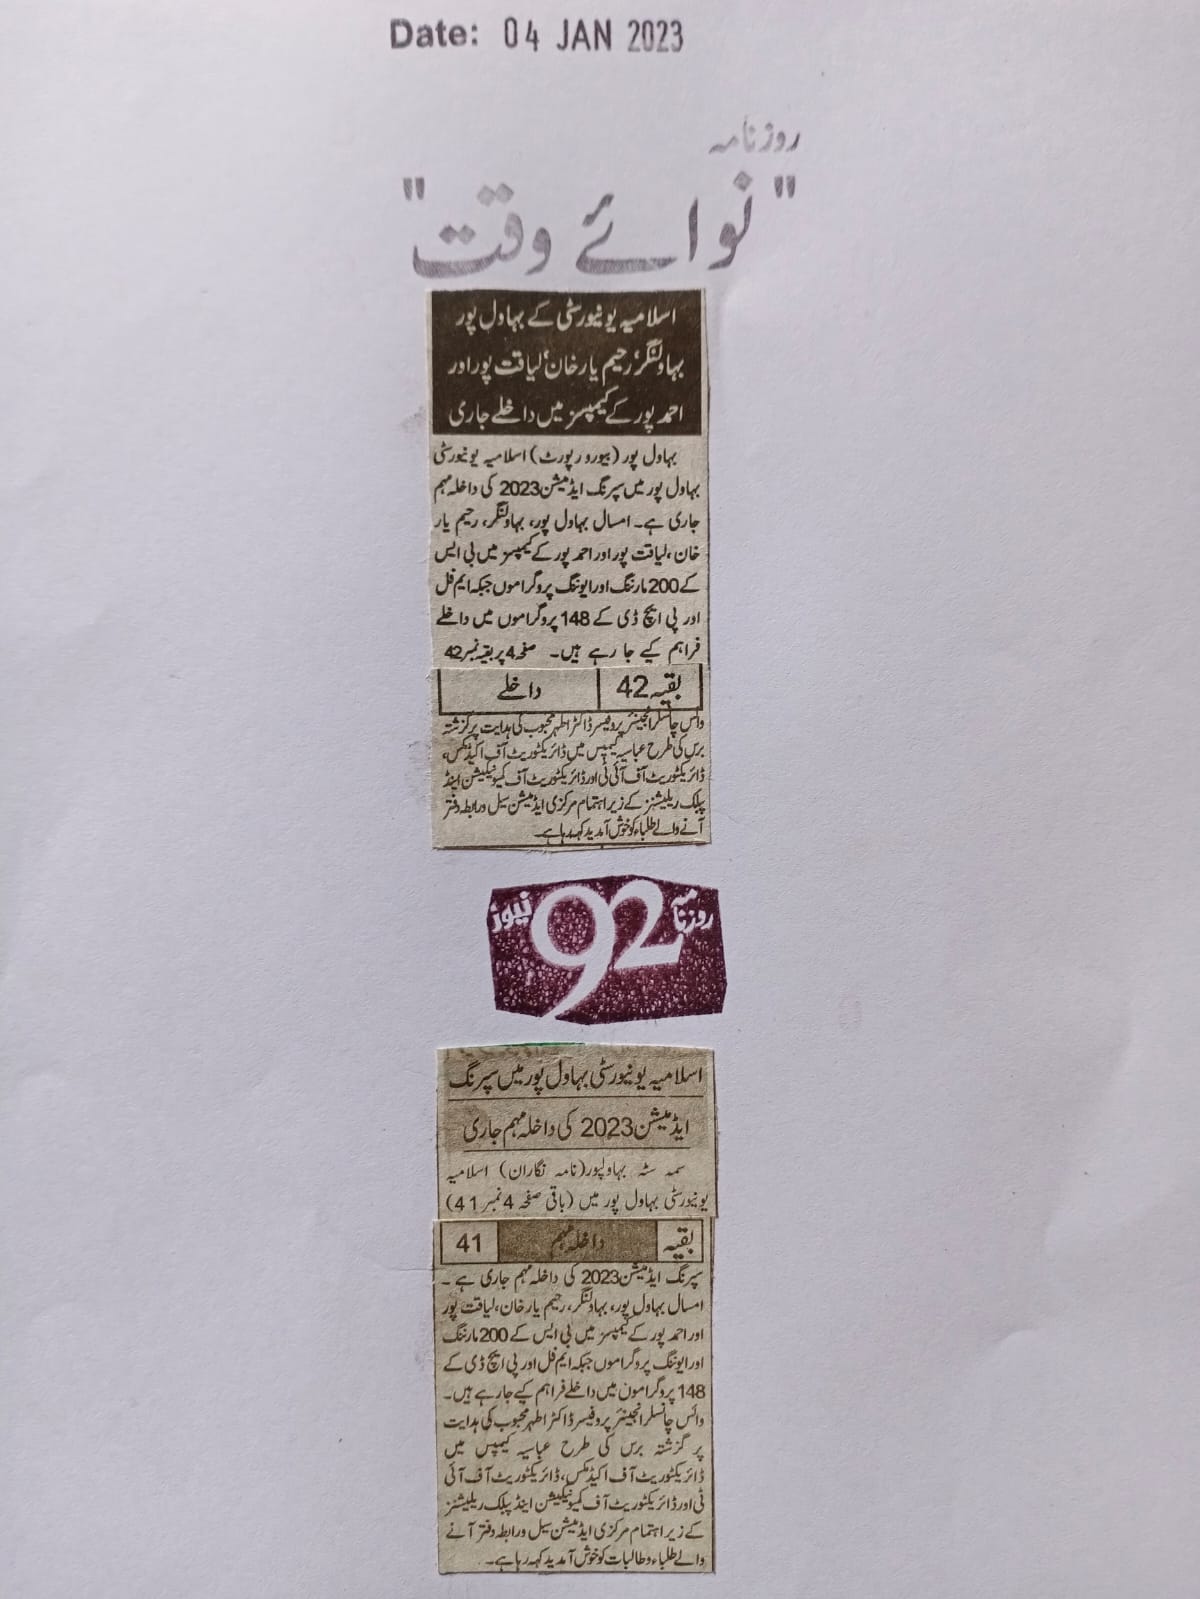 Date: 04 JAN 2023
روزنامہ
"نوائے وقت"
اسلامیہ یونیورسٹی کے بہاول پور
بہاولنگر، رحیم یار خان، لیاقت پور اور
احمد پور کے کیمپسز میں داخلے جاری
بہاول پور (بیورو رپورٹ) اسلامیہ یونیورسٹی
بہاول پور میں سپرنگ ایڈمیشن 2023 کی داخلہ مہم
جاری ہے۔ امسال بہاول پور، بہاولنگر، رحیم یار
خان، لیاقت پور اور احمد پور کے کیمپسز میں بی ایس
کے 200 مارننگ اور ایوننگ پروگراموں جبکہ ایم فل
اور پی ایچ ڈی کے 148 پروگراموں میں داخلے
فراہم کیے جا رہے ہیں۔ صفحہ 4 پر بقیہ نمبر 42
بقیہ 42 داخلے
وائس چانسلر انجینئر پروفیسر ڈاکٹر اطہر محبوب کی ہدایت پر گزشتہ
برس کی طرح عباسیہ کیمپس میں ڈائریکٹوریٹ آف اکیڈمکس،
ڈائریکٹوریٹ آف آئی ٹی اور ڈائریکٹوریٹ آف کمیونیکیشن اینڈ
پبلک ریلیشنز کے زیر اہتمام مرکزی ایڈمیشن سیل و رابطہ دفتر
آنے والے طلباء کو خوش آمدید کہہ رہا ہے۔
روزنامہ 92 نیوز
اسلامیہ یونیورسٹی بہاول پور میں سپرنگ
ایڈمیشن 2023 کی داخلہ مہم جاری
سمہ سٹہ بہاولپور (نامہ نگاران) اسلامیہ
یونیورسٹی بہاول پور میں (باقی صفحہ 4 نمبر 41)
بقیہ داخلہ مہم 41
سپرنگ ایڈمیشن 2023 کی داخلہ مہم جاری ہے۔
امسال بہاول پور، بہاولنگر، رحیم یار خان، لیاقت پور
اور احمد پور کے کیمپسز میں بی ایس کے 200 مارننگ
اور ایوننگ پروگراموں جبکہ ایم فل اور پی ایچ ڈی کے
148 پروگرامون میں داخلے فراہم کیے جا رہے ہیں۔
وائس چانسلر انجینئر پروفیسر ڈاکٹر اطہر محبوب کی ہدایت
پر گزشتہ برس کی طرح عباسیہ کیمپس میں
ڈائریکٹوریٹ آف اکیڈمکس، ڈائریکٹوریٹ آف آئی
ٹی اور ڈائریکٹوریٹ آف کمیونیکیشن اینڈ پبلک ریلیشنز
کے زیر اہتمام مرکزی ایڈمیشن سیل و رابطہ دفتر آنے
والے طلباء و طالبات کو خوش آمدید کہہ رہا ہے۔